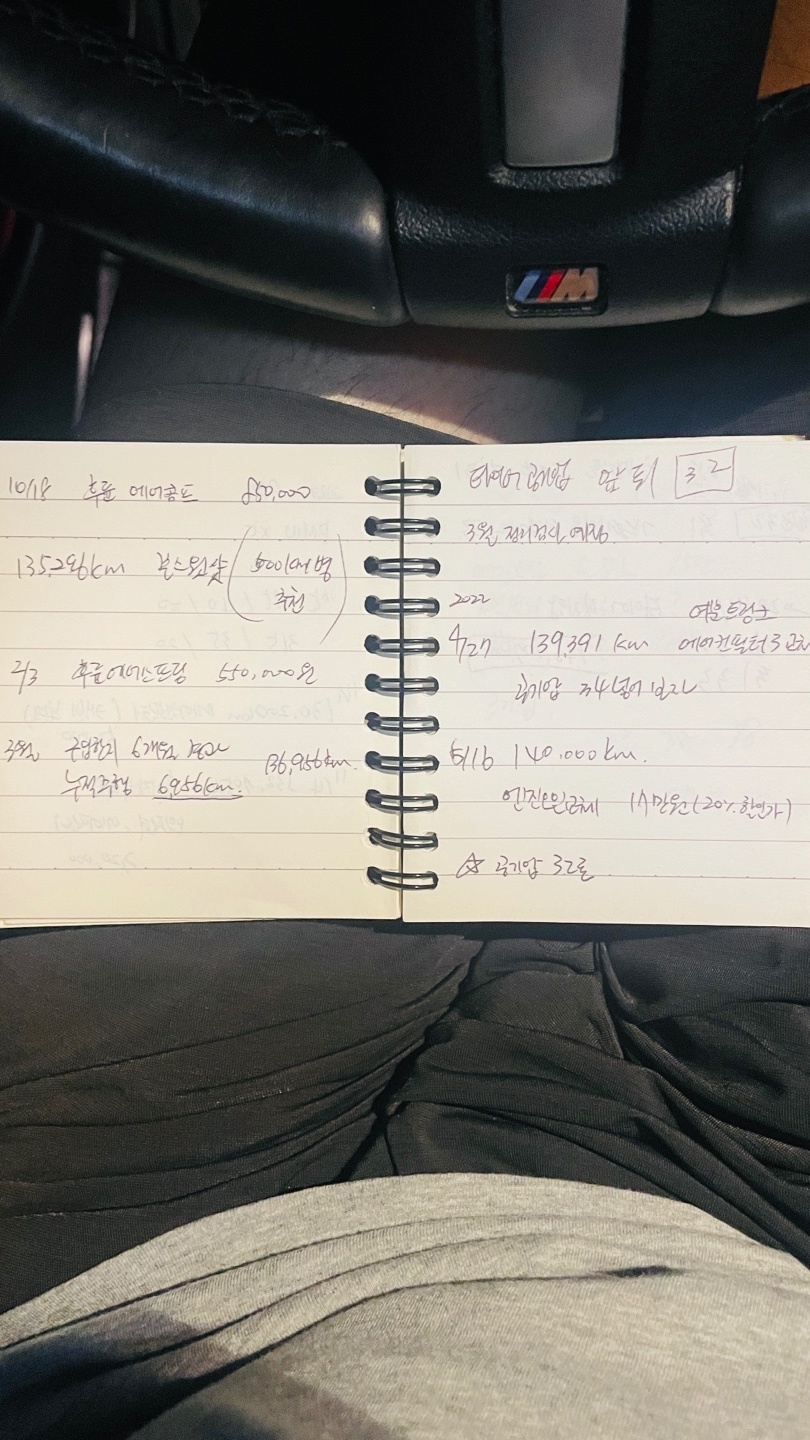 M
10/18 후륜 에어콤프 850,000
135,296km 불스원샷 (500ml 1병
추천)
2/3 후륜에어스프링 550,000원
3월 구입한지 6개월 경과 136,956km.
누적주행 6,956km.
타이어 공기압 앞 뒤 32
3월 정기검사 예정
2022
4/27 139,391 km 에어컨필터 3
공기압 34 넣어보자
5/16 140,000km.
엔진오일교체 17만원 (20% 할인가)
☆ 공기압 32로